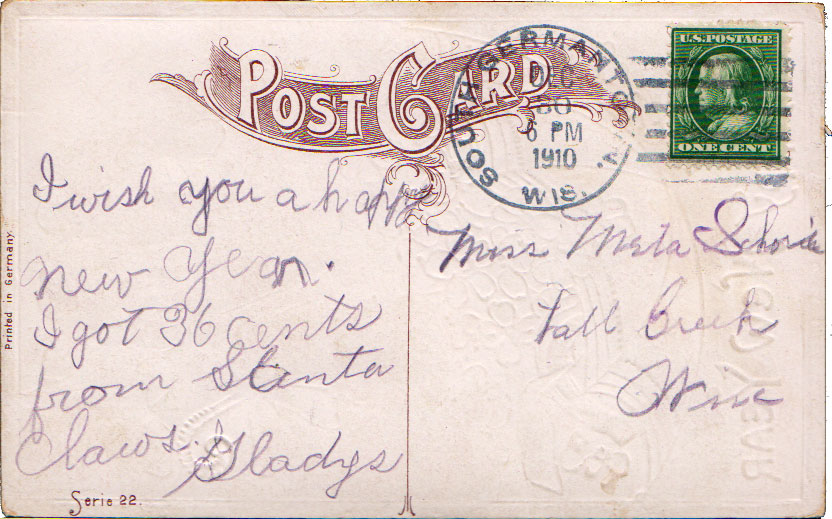 POST CARD
SOUTH GERMANTOWN
DEC
30
6 PM
1910
WIS.
U.S. POSTAGE
ONE CENT
I wish you a happy
new Year.
I got 36 cents
from Santa
Claws. Gladys
Miss Meta
Fall Creek
Wisc
Printed in Germany.
Serie 22.
YEAR